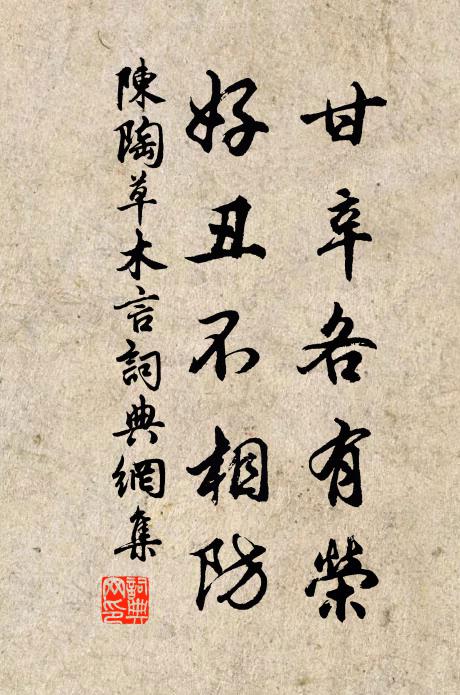 甘辛各有榮
好丑不相防
陳陶草木言詞典網集
詞典網印